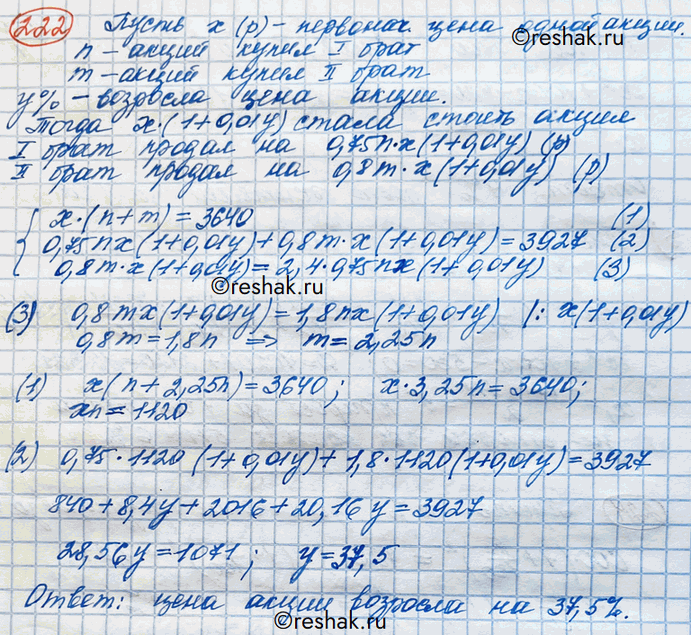 222 Пусть x (р) - первонач. цена одной акции.
n - акций купил I брат
m - акций купил II брат
y% - возросла цена акции.
Тогда x·(1+0,01y) стала стоить акция
I брат продал на 0,75n·x(1+0,01y) (р)
II брат продал на 0,8m·x(1+0,01y) (р)
x·(n+m)=3640 (1)
0,75nx(1+0,01y)+0,8m·x(1+0,01y)=3927 (2)
0,8m·x(1+0,01y)=2,4·0,75nx(1+0,01y) (3)
reshak.ru
(3) 0,8mx(1+0,01y)=1,8nx(1+0,01y) |: x(1+0,01y)
0,8m=1,8n ⇒ m=2,25n
(1) x(n+2,25n)=3640; x·3,25n=3640;
xn=1120
(2) 0,75·1120(1+0,01y)+1,8·1120(1+0,01y)=3927
840+8,4y+2016+20,16y=3927
28,56y=1071; y=37,5
Ответ: цена акции возросла на 37,5%.
reshak.ru
reshak.ru